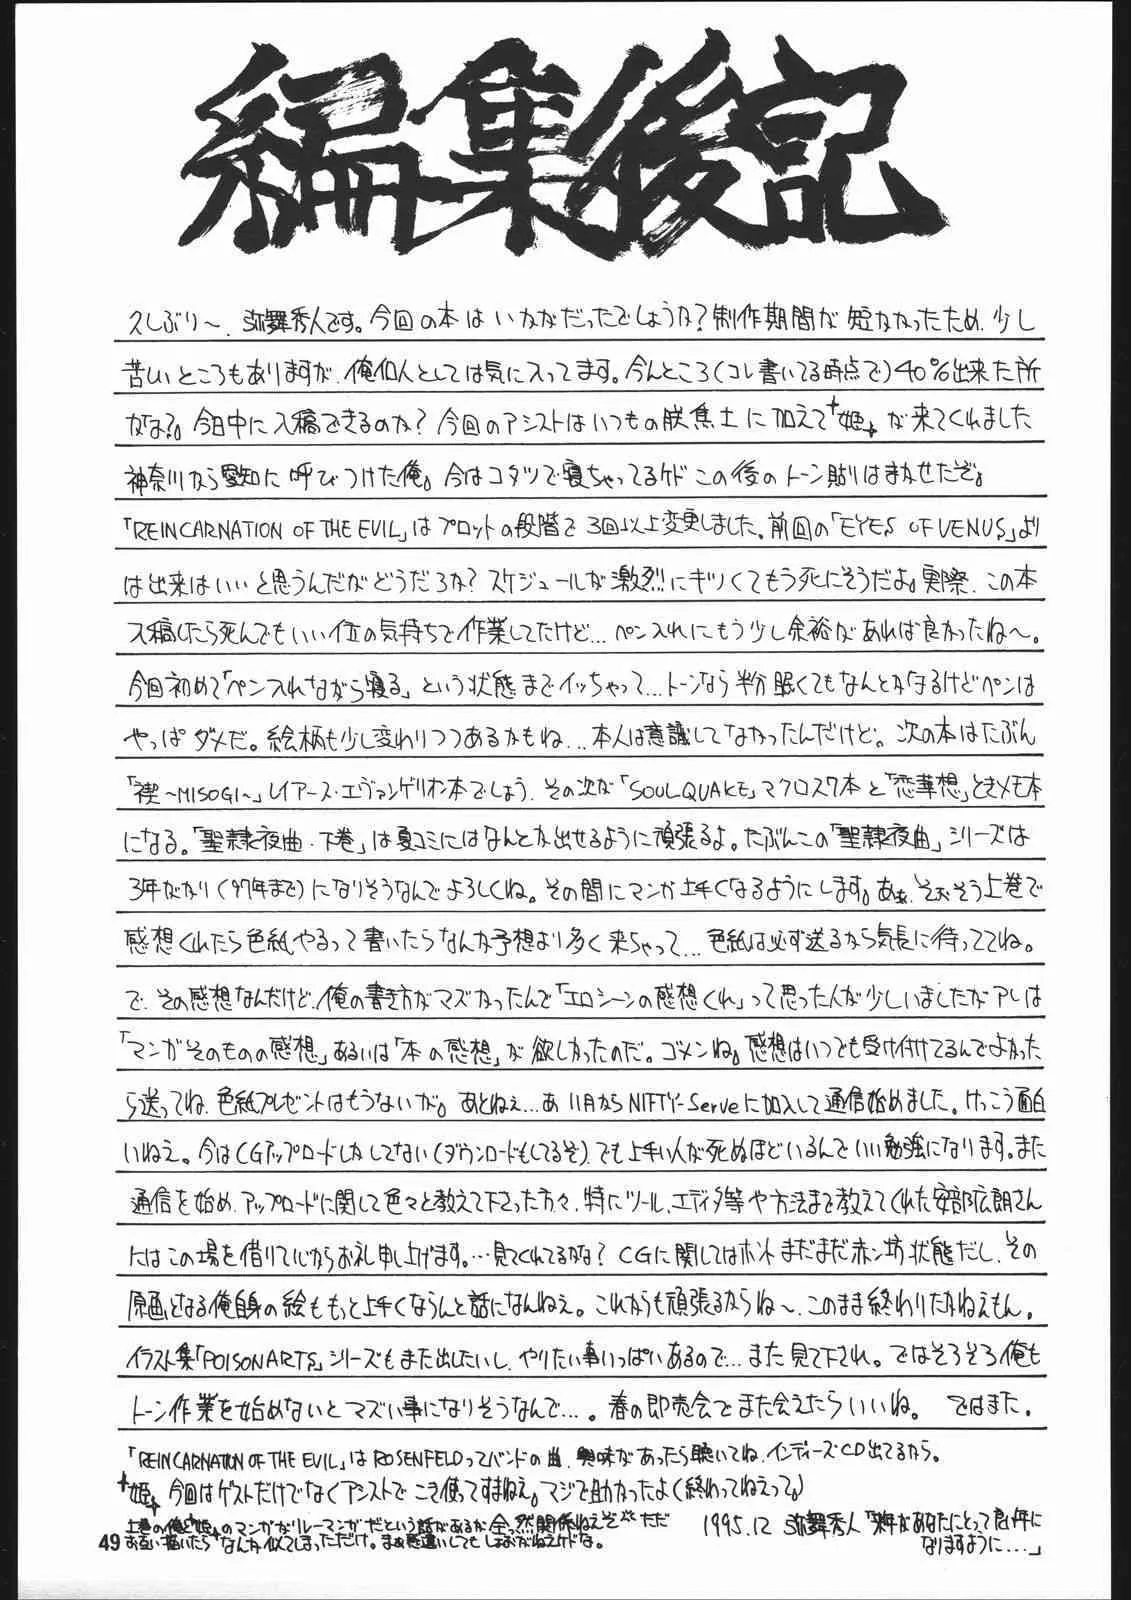 編集後記
久しぶり〜、弥舞秀人です。今回の本はいかがだったでしょうか?制作期間が短かかったため、少し
苦しいところもありますが、俺個人としては気に入ってます。今んところ(コレ書いてる時点で)40%出来た所
かな?。今日中に入稿できるのか?今回のアシストはいつもの朕焦土に加えて"姫"が来てくれました
神奈川から愛知に呼びつけた俺。今はコタツで寝ちゃってるケドこの後のトーン貼りはまかせたぞ。
「REINCARNATION OF THE EVIL」はプロットの段階で3回以上変更しました。前回の「EYES OF VENUS」より
は出来はいいと思うんだがどうだろな?スケジュールが激烈!!にキツくてもう死にそうだよ。実際、この本
入稿したら死んでもいい位の気持ちで作業してたけど…ペン入れにもう少し余裕があれば良かったね〜。
今回初めて「ペン入れながら寝る」という状態までイッちゃって…トーンなら半分眠くてもなんとかなるけどペンは
やっぱダメだ。絵柄も少し変わりつつあるかもね…本人は意識してなかったんだけど。次の本はたぶん
「禊〜MISOGI〜」レイアース・エヴァンゲリオン本でしょう。その次が「SOUL QUAKE」マクロス7本と「恋華想」ときメモ本
になる。「聖隷夜曲・下巻」は夏コミにはなんとか出せるように頑張るよ。たぶんこの「聖隷夜曲」シリーズは
3年がかり('97年まで)になりそうなんでよろしくね。その間にマンガ上手くなるようにします。あぁ、そおそう上巻で
感想くれたら色紙やるって書いたらなんか予想より多く来ちゃって…色紙は必ず送るから気長に待っててね。
で、その感想なんだけど、俺の書き方がマズかったんで「エロシーンの感想くれ」って思った人が少しいましたがアレは
「マンガそのものの感想」あるいは「本の感想」が欲しかったのだ。ゴメンね。感想はいつでも受け付けてるんでよかった
ら送ってね、色紙プレゼントはもうないが。あとねぇ…あ 11月からNIFTY-Serveに加入して通信始めました。けっこう面白
いねえ。今はCGアップロードしかしてない(ダウンロードもしてるぞ)、でも上手い人が死ぬほどいるんでいい勉強になります。また
通信を始め、アップロードに関して色々と教えて下さった方々、特にツール、エディタ等や方法まで教えてくれた安部広朗さん
にはこの場を借りて心からお礼申し上げます。…見てくれてるかな?CGに関してはホントまだまだ赤ン坊状態だし、その
原画となる俺自身の絵ももっと上手くならんと話になんねえ。これからも頑張るからね〜、このまま終わりたかねえもん。
イラスト集「POISON ARTS」シリーズもまた出したいし、やりたい事いっぱいあるので…また見て下され。ではそろそろ俺も
トーン作業を始めないとマズい事になりそうなんで…。春の即売会でまた会えたらいいね。 ではまた。
「REINCARNATION OF THE EVIL」はROSENFELDってバンドの曲、興味があったら聴いてね、インディーズCD出てるから。
"姫"、今回はゲストだけでなくアシストでこき使ってすまねえ。マジで助かったよ(終わってねえって。)
上巻の俺と"姫"のマンガがリレーマンガだという話があるが全っ然関係ねえぞ ただ
お互い描いたらなんか似てしまっただけ。まぁ勘違いしてもしょおがねえけどな。
1995.12 弥舞秀人「来年があなたにとって良い年に
なりますように…」
49